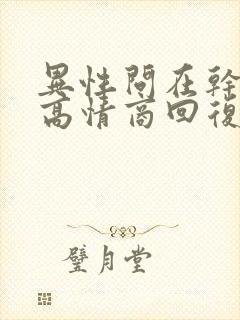 異性問在幹
高情商回復
璧月堂